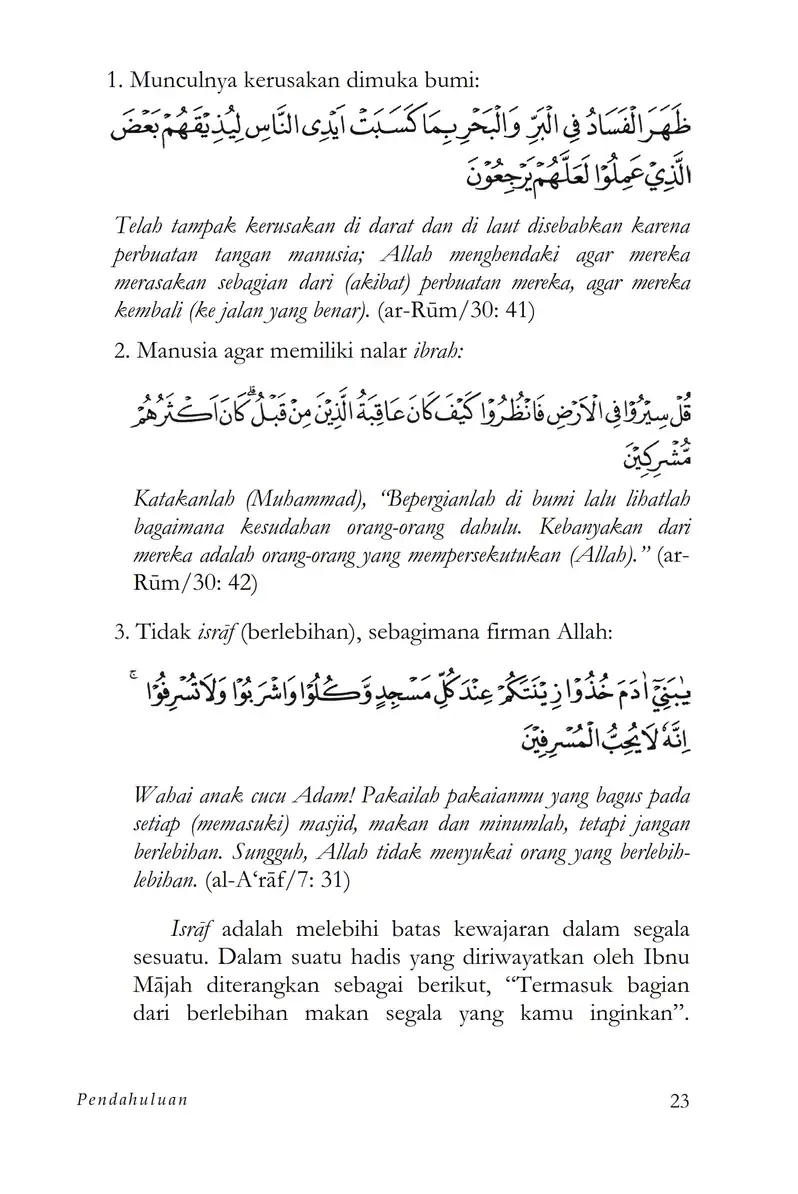 1. Munculnya kerusakan dimuka bumi:
ظَهَرَ الْفَسَادُ فِى الْبَرِّ وَالْبَحْرِ بِمَا كَسَبَتْ اَيْدِى النَّاسِ لِيُذِيْقَهُمْ بَعْضَ
الَّذِيْ عَمِلُوْا لَعَلَّهُمْ يَرْجِعُوْنَ
Telah tampak kerusakan di darat dan di laut disebabkan karena
perbuatan tangan manusia; Allah menghendaki agar mereka
merasakan sebagian dari (akibat) perbuatan mereka, agar mereka
kembali (ke jalan yang benar). (ar-Rūm/30: 41)
2. Manusia agar memiliki nalar ibrah:
قُلْ سِيْرُوْا فِى الْاَرْضِ فَانْظُرُوْا كَيْفَ كَانَ عَاقِبَةُ الَّذِيْنَ مِنْ قَبْلُۗ كَانَ اَكْثَرُهُمْ
مُّشْرِكِيْنَ
Katakanlah (Muhammad), “Bepergianlah di bumi lalu lihatlah
bagaimana kesudahan orang-orang dahulu. Kebanyakan dari
mereka adalah orang-orang yang mempersekutukan (Allah).” (ar-
Rūm/30: 42)
3. Tidak isrāf (berlebihan), sebagimana firman Allah:
يٰبَنِيْٓ اٰدَمَ خُذُوْا زِيْنَتَكُمْ عِنْدَ كُلِّ مَسْجِدٍ وَّكُلُوْا وَاشْرَبُوْا وَلَا تُسْرِفُوْاۚ
اِنَّهٗ لَا يُحِبُّ الْمُسْرِفِيْنَ
Wahai anak cucu Adam! Pakailah pakaianmu yang bagus pada
setiap (memasuki) masjid, makan dan minumlah, tetapi jangan
berlebihan. Sungguh, Allah tidak menyukai orang yang berlebih-
lebihan. (al-A‘rāf/7: 31)
Isrāf adalah melebihi batas kewajaran dalam segala
sesuatu. Dalam suatu hadis yang diriwayatkan oleh Ibnu
Mājah diterangkan sebagai berikut, “Termasuk bagian
dari berlebihan makan segala yang kamu inginkan”.
Pendahuluan 23